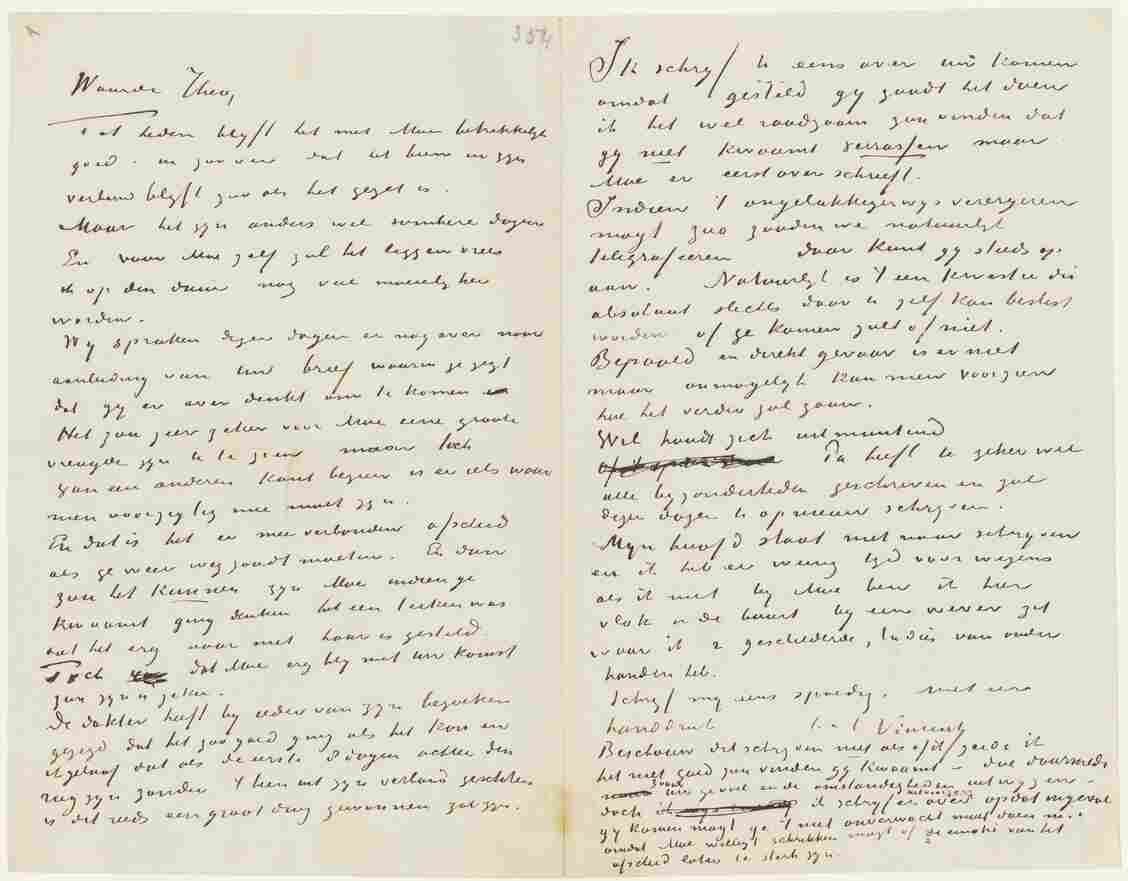 354
Waarde Theo,
Tot heden blijft het met Moe betrekkelijk
goed. in zoo ver dat het been in zijn
verband blijft zoo als het gezet is.
Maar het zijn anders wel sombere dagen
En voor Moe zelf zal het liggen vrees
ik op den duur nog veel moeielijker
worden.
Wij spraken dezer dagen er nog over naar
aanleiding van Uw brief waarin ge zegt
dat gij er over denkt om te komen
Het zou zeer zeker voor Moe eene groote
vreugde zijn U te zien maar toch
van een anderen kant bezien is er iets waar
men voorzigtig mee moet zijn.
En dat is het er mee verbonden afscheid
als ge weer weg zoudt moeten. En dan
zou het kunnen zijn Moe indien ge
kwaamt ging denken het een teeken was
dat het erg naar met haar is gesteld.
Toch dat Moe erg blij met uw komst
zou zijn is zeker.
De dokter heeft bij ieder van zijn bezoeken
gezegd dat het zoo goed ging als het kon en
ik geloof dat als de eerste dagen achter den
rug zijn zonder 't been uit zijn verband geschoten
is dit reeds een groot ding gewonnen zal zijn.
Ik schrijf U eens over uw komen
omdat gesteld gij zoudt het doen
ik het wel raadzaam zou vinden dat
gij niet kwaamt verrassen maar
Moe er eerst over schreeft.
Indien 't ongelukkigerwijs verergeren
mogt zoo zouden we natuurlijk
telegrafeeren daar kunt gij steeds op
aan. Natuurlijk is 't een kwestie die
absoluut slechts door U zelf kan beslist
worden of ge komen zult of niet.
Bepaald en direkt gevaar is er niet
maar onmogelijk kan men voorzien
hoe het verder zal gaan.
Wil houdt zich uitmuntend
Pa heeft U zeker wel
alle bijzonderheden geschreven en zal
dezer dagen U op nieuw schrijven.
Mijn hoofd staat niet naar schrijven
en ik heb er weinig tijd voor wegens
als ik niet bij Moe ben ik hier
vlak in de buurt bij een wever zit
waar ik 2 geschilderde studies van onder
handen heb.
Schrijf mij eens spoedig. met een
handdruk t. à t. Vincent
Beschouw dit schrijven niet als of ik zeide ik
het niet goed zou vinden gij kwaamt – dat daarmede
zoude uw gevoel en de omstandigheden uitwijzen –
doch ik schrijf er over opdat ingeval
gij komen mogt ge 't niet onverwacht moet doen
omdat Moe welligt schrikken mogt of de emotie van het
afscheid later te sterk zijn.